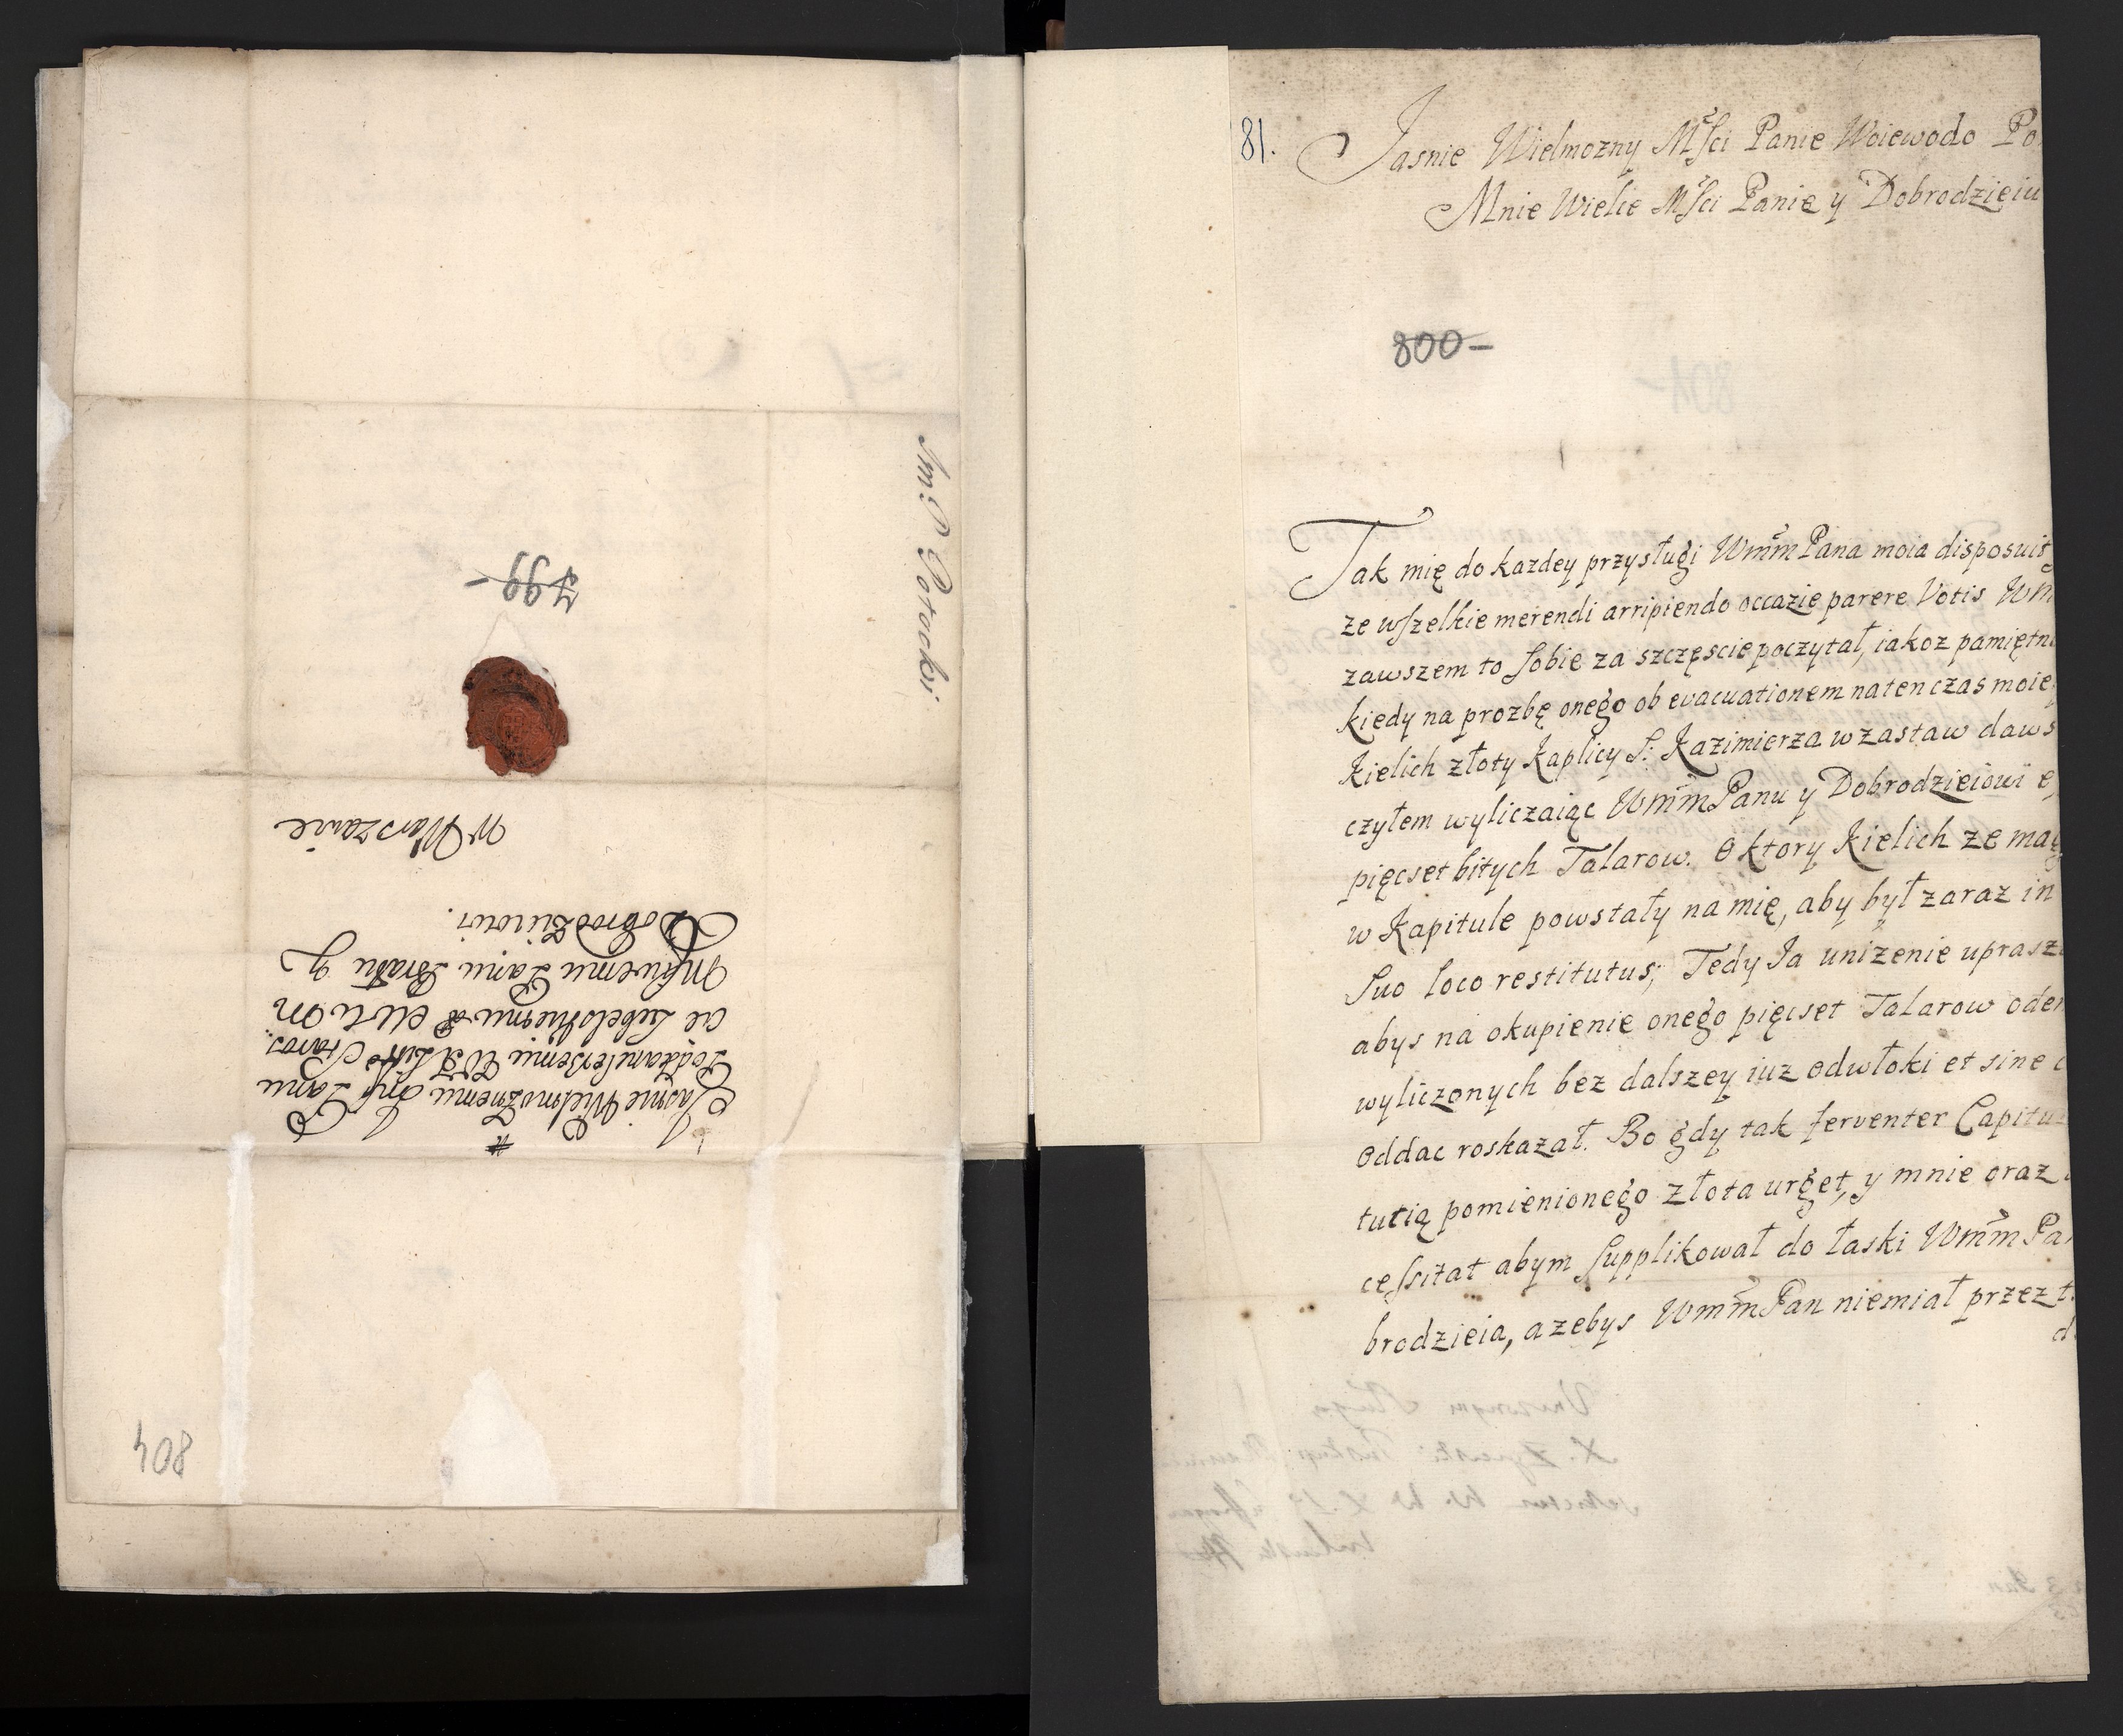 Im: P Potocki
799-
w Warszawie
Jasnie Wielmożnemu Imp Panu
Podkanclerzemu WXLitto Staros:
cie Lubelskiemu
Mściwemu Panu Bratu y
Dobrodzieiowi.
804
81.
Jasnie Wielmozny Mści Panie Woiewodo Po
Mnie Wielce Mści Panie y Dobrodzieiu
800-
801-
Tak mię do kazdey przysługi WmmPana moia disposuit
ze wszelkie merendi arripiendo occazie parere Votis Wm
zawszem to sobie za szczęscie poczytał, iakoz pamiętn
kiedy na prozbę onego ob evacuationem naten czas moie
kielich złoty kaplicy S: Kazimierza w zastaw daws
czyłem wyliczaiąc WmmPanu y Dobrodzieiowi
pięcset bitych Talarow. O ktory Kielich ze ma
w Kapitule powstały na mię, aby był zaraz in
Suo loco restitutus; Tedy Ja unizenie uprasz
abys na okupienie onego pięcset Talarow ode
wyliczonych bez dalszey iuz odwłoki et sine
Oddac roskazał. Bo gdy tak ferventer Capitu
tutią pomienionego złota urget, y mnie oraz
cessitat abym supplikował do łaski Wmm Pa
brodzieia, a zebys WmmPan niemiał przez t
d